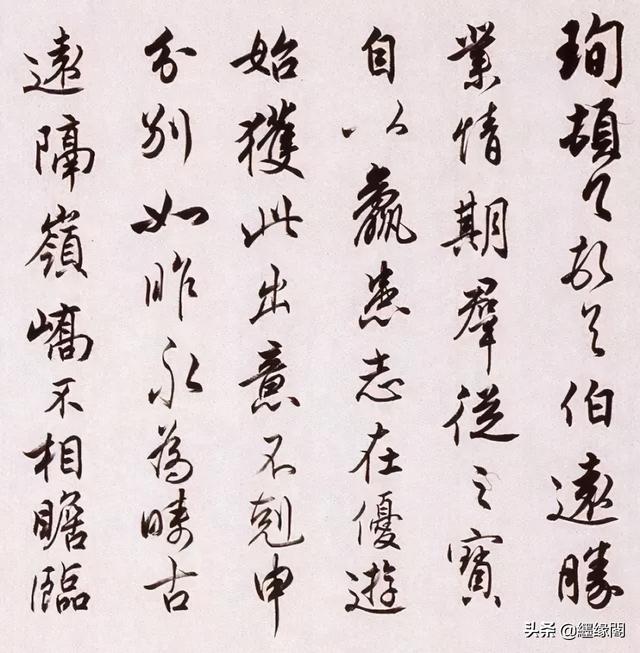 珣頓首頓首伯遠勝
業情期羣從之寶
自以羸患志在優遊
始獲此出意不剋申
分別如昨永為疇古
遠隔嶺嶠不相瞻臨
头条